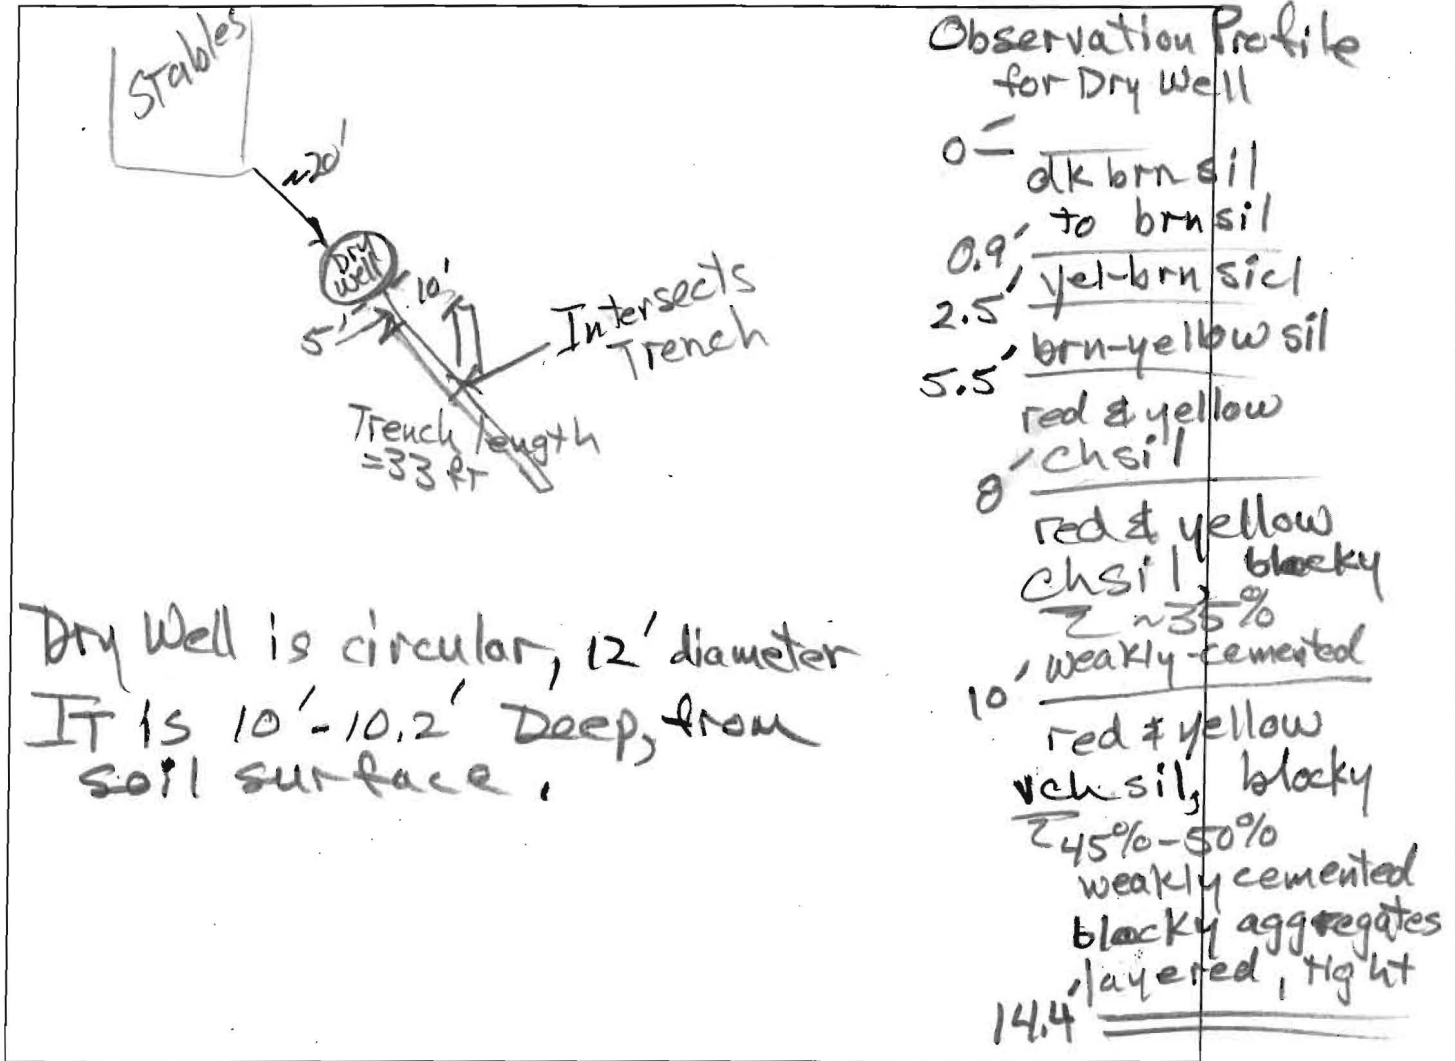 Stables
~20'
Dry
Well
10'
5'
Intersects
Trench
Trench length
=33 ft
Dry Well is circular, 12' diameter
IT is 10'-10.2' Deep, from
soil surface.
Observation Profile
for Dry Well
0'
dk brn sil
to brn sil
0.9'
yel-brn sicl
2.5'
brn-yellow sil
5.5'
red & yellow
chsil
8'
red & yellow
chsil, blocky
~35%
weakly-cemented
10'
red & yellow
vchsil, blocky
45%-50%
weakly cemented
blocky aggregates
layered, tight
14.4'